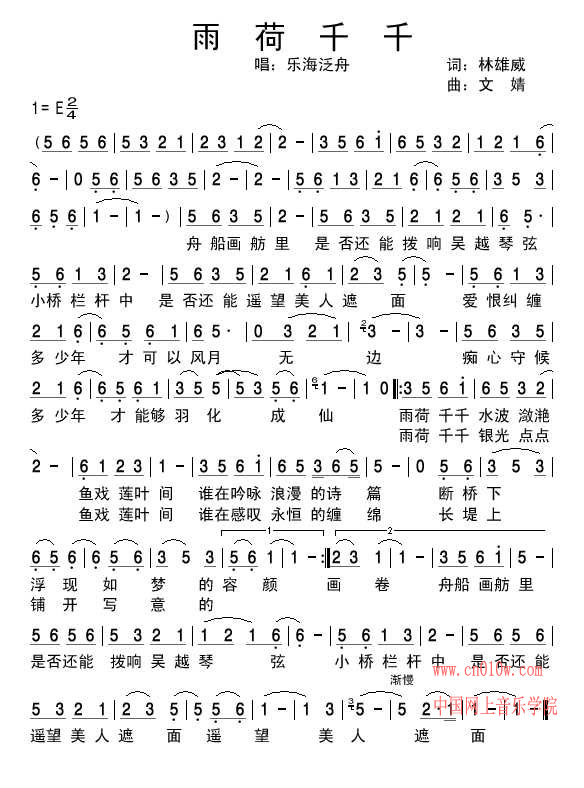 雨荷千千
唱：乐海泛舟 词：林雄威
曲：文 婧
1=E 2/4
(5 6 5 6 | 5 3 2 1 | 2 3 1 2 | 2 - | 3 5 6 i | 6 5 3 2 | 1 2 1 6 |
6 - | 0 5 6 | 5 6 3 5 | 2 - | 2 - | 5 6 1 3 | 2 1 6 | 6 5 6 | 3 5 3 |
6 5 6 | 1 - | 1 - ) | 5 6 3 5 | 5 6 3 5 | 2 1 2 1 | 6 5· |
舟 船画 舫 里 是 否还 能 拨 响 吴 越 琴 弦
5 6 1 3 | 2 - | 5 6 3 5 | 2 1 6 1 | 2 3 5 | 5 - | 5 6 1 3 |
小桥 栏 杆 中 是 否还 能 遥 望 美 人 遮 面 爱 恨纠 缠
2 1 6 | 6 5 6 1 | 6 5· | 0 3 2 1 | 3 - | 3 - | 5 6 3 5 |
多 少年 才 可 以 风月 无 边 痴 心 守 候
2 1 6 | 6 1 2 | 3 5 5 | 5 3 5 6 | 6 1 - | 1 0 |: 3 5 6 i | 6 5 3 2 |
多 少年 才 能够 羽 化 成 仙 雨荷 千千 水波 潋滟
雨荷 千千 银光 点点
2 - | 6 1 2 3 | 1 - | 3 5 6 i | 6 5 3 6 5 | 5 - | 0 5 6 | 3 5 3 |
鱼戏 莲叶 间 谁在吟咏 浪漫 的诗 篇 断 桥下
鱼戏 莲叶 间 谁在感叹 永恒 的缠 绵 长 堤上
1 2
6 5 6 | 6 5 6 | 3 5 3 | 5 6 1 | 1 - :| 2 3 1 | 1 - | 5 6 3 5 |
浮 现 如 梦 的 容 颜 画 卷 舟船 画舫 里
铺 开 写 意 的
5 6 5 6 | 5 3 2 1 | 1 2 1 6 | 6 - | 5 6 1 3 | 2 - | 5 6 3 5 |
是否还能 拨响 吴 越 琴 弦 小 桥 栏 杆 中 是 否还 能
www.cn010w.com
渐慢
中国网上音乐学院
5 3 2 1 | 2 3 5 | 5 - | 2 1 6 | 1 - | 3 5 - | 5 2·1 | 1 - ‖
遥望 美 人 遮 面 遥 望 美 人 遮 面